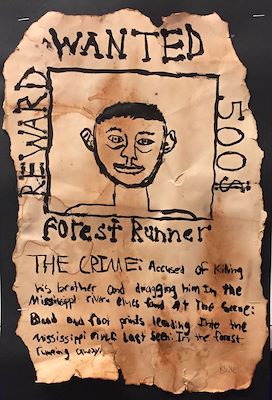 WANTED
REWARD
500$
Forest Runner
THE CRIME: Accused of Killing
his brother and dragging him In the
Mississippi river clues found At The Scene:
Blood and foot prints leading Into the
Mississippi river Last Seen: In the forest
running away!